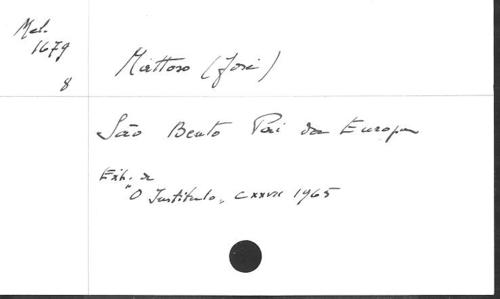 Mel.
1679
8
Mattoso (José)
São Bento Pai da Europa
Ext. de
"O Instituto", CXXVII 1965